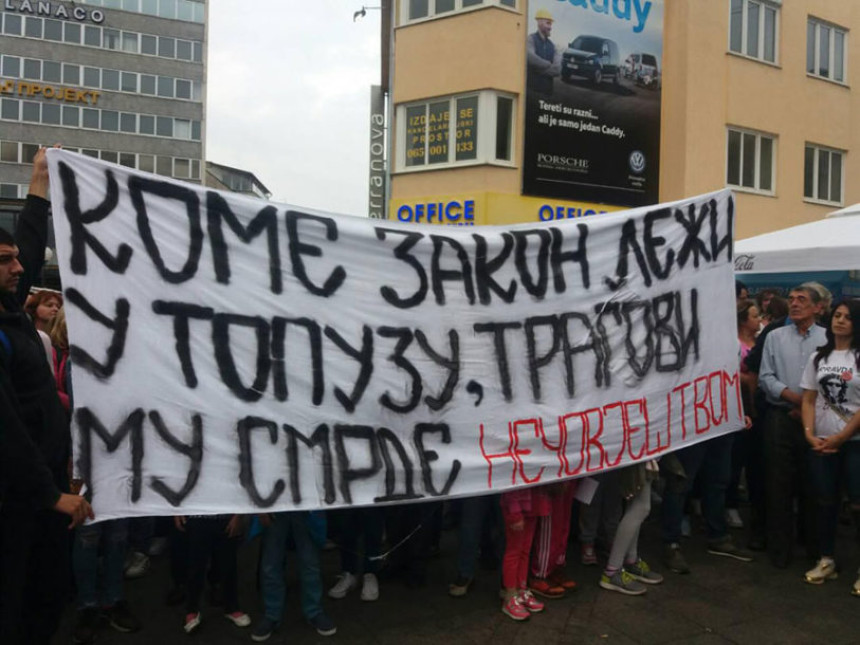 LANACO
ПРОЈЕКТ
Caddy
Tereti su razni...
ali je samo jedan Caddy.
PORSCHE
IZDAJE SE
KANCELARIJSKI
PROSTOR
065 001 133
erranova
OFFICE
OFFICE
КОМЕ ЗАКОН ЛЕЖИ
У ТОПУЗУ, ТРАГОВИ
МУ СМРДЕ НЕЧОВЈЕШТВОМ